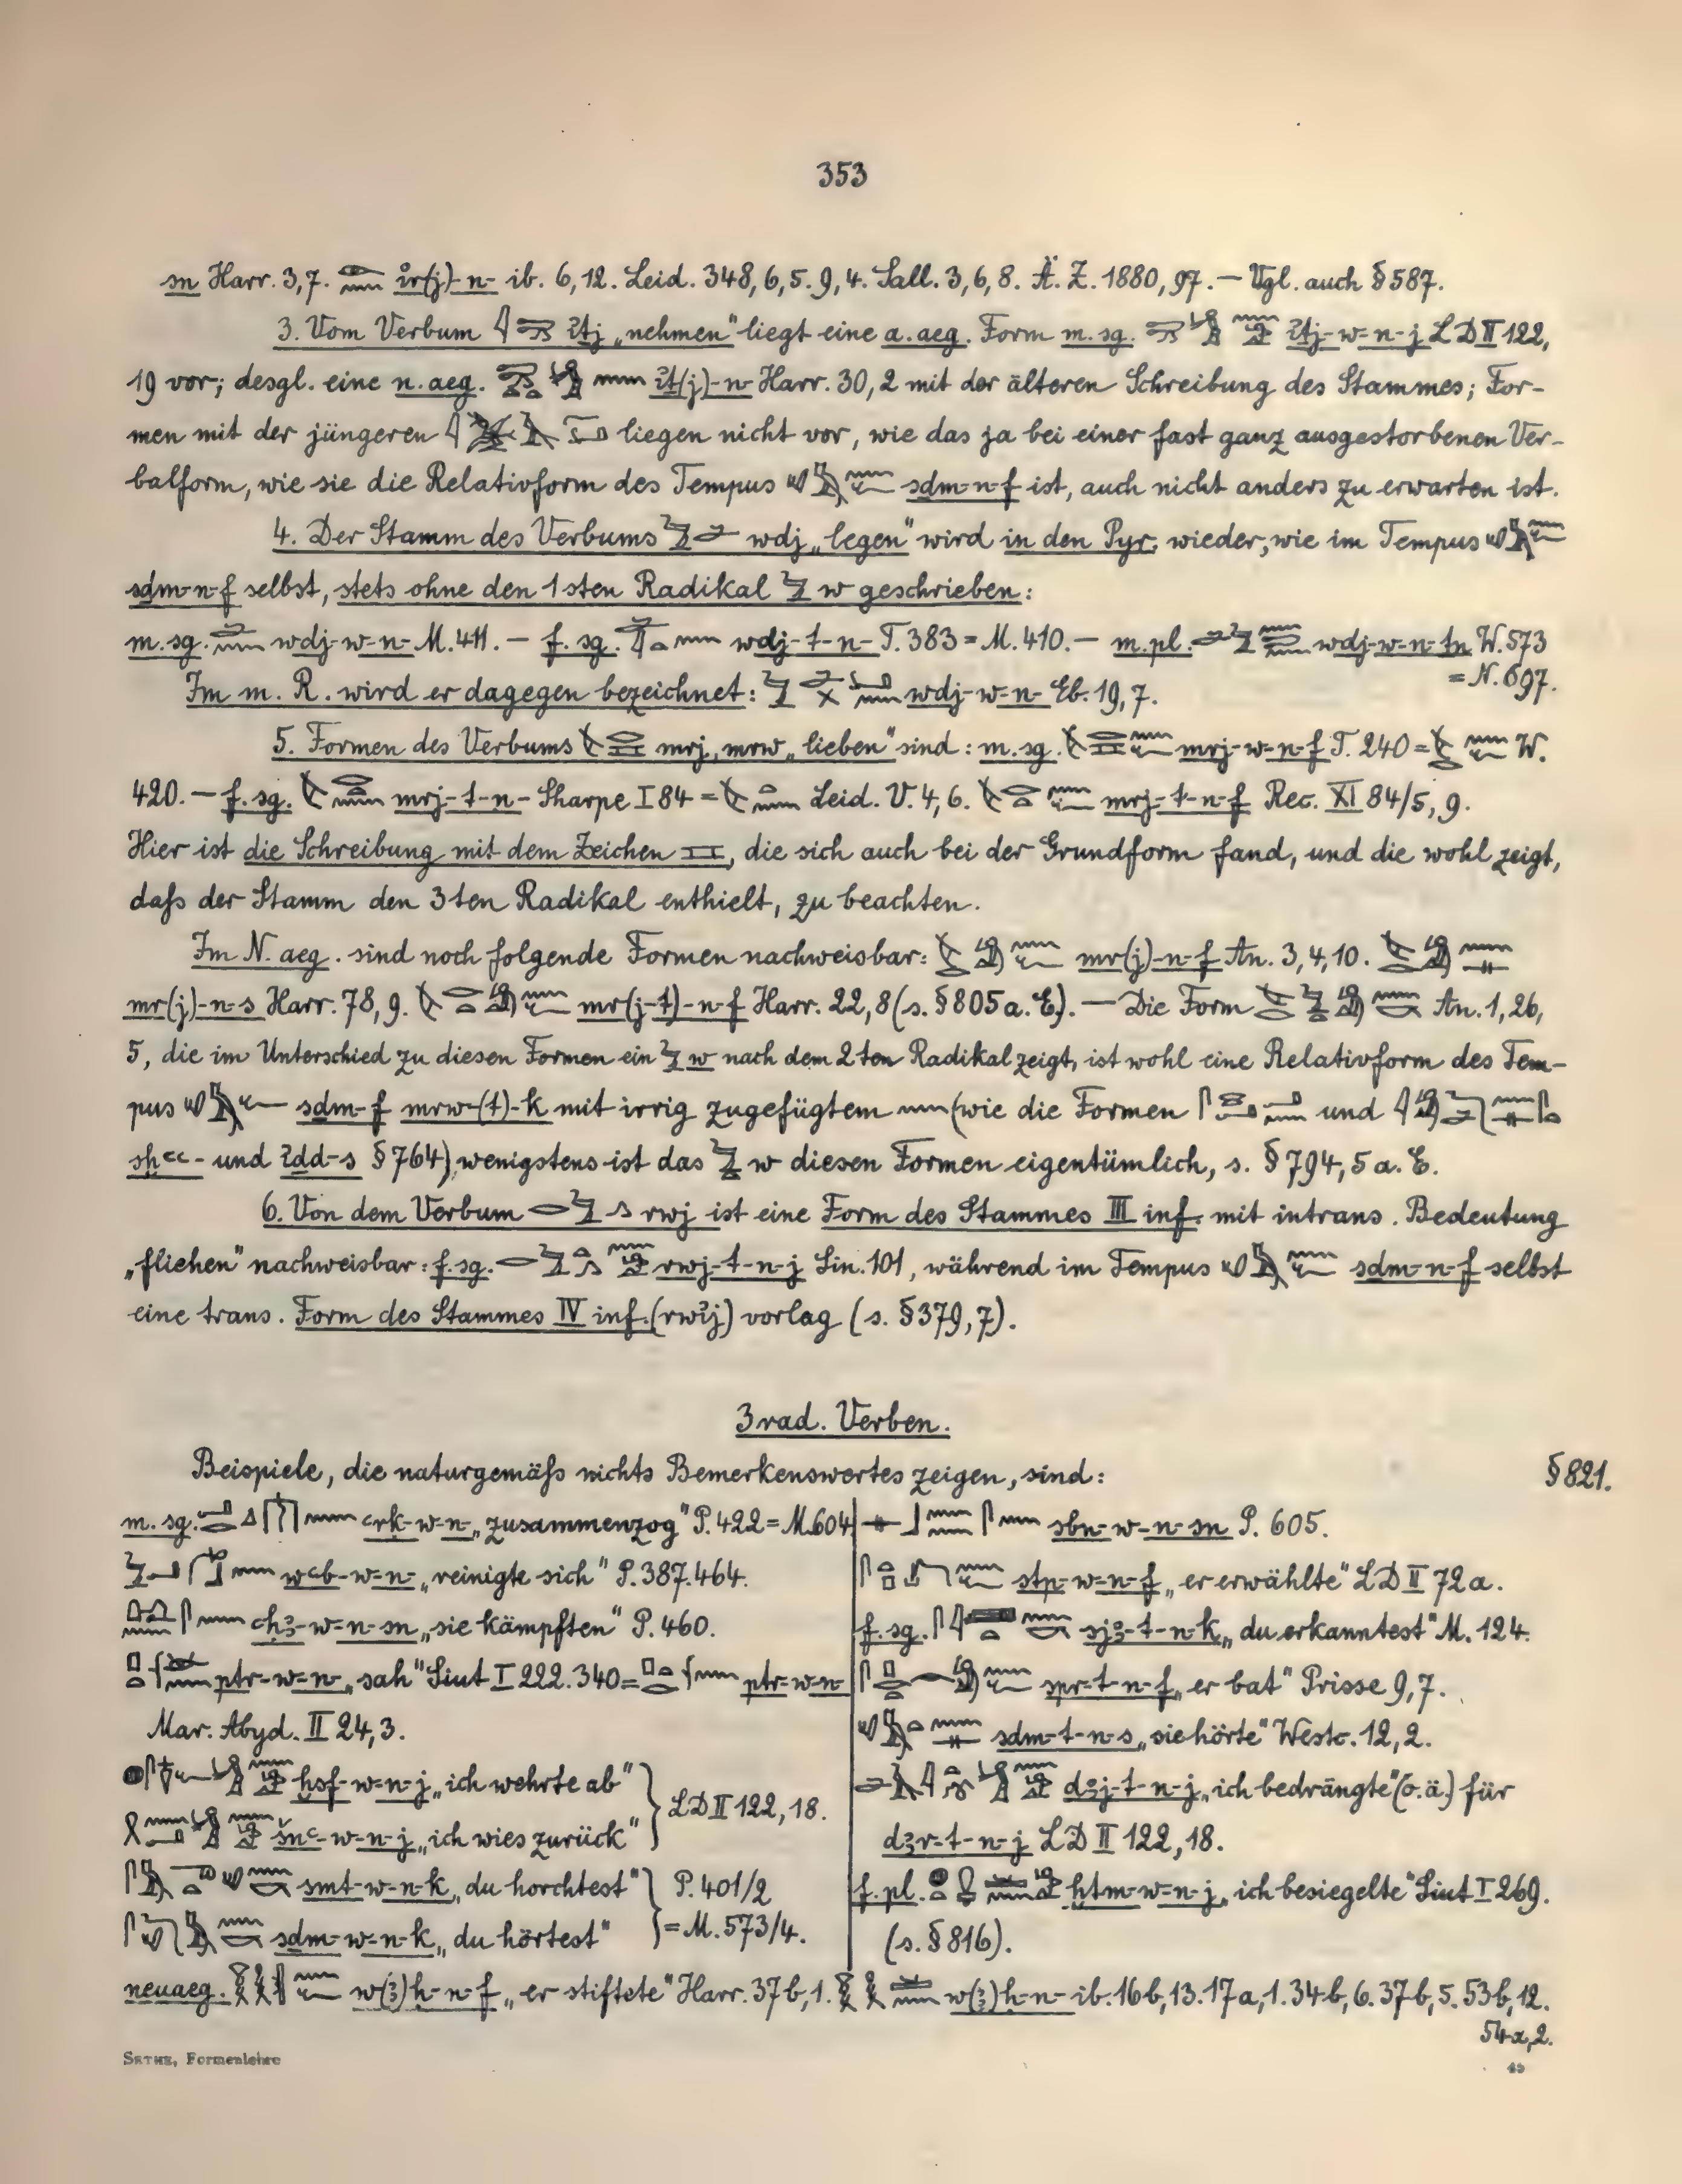 353
sn Harr. 3,7. ir(j)-n- ib. 6,12. Leid. 348,6,5. 9,4. Sall. 3,6,8. Ä. Z. 1880, 97. — Vgl. auch § 587.
3. Vom Verbum iṯj „nehmen“ liegt eine a. aeg. Form m. sg. iṯj-w-n-j LD II 122,
19 vor; desgl. eine n. aeg. iṯ(j)-n- Harr. 30,2 mit der älteren Schreibung des Stammes; For-
men mit der jüngeren liegen nicht vor, wie das ja bei einer fast ganz ausgestorbenen Ver-
balform, wie sie die Relativform des Tempus sdm-n-f ist, auch nicht anders zu erwarten ist.
4. Der Stamm des Verbums wdj „legen“ wird in den Pyr. wieder, wie im Tempus
sdm-n-f selbst, stets ohne den 1sten Radikal w geschrieben:
m. sg. wdj-w-n- M. 411. — f. sg. wdj-t-n- T. 383 = M. 410. — m. pl. wdj-w-n-ṯn W. 573
= N. 697.
Im m. R. wird er dagegen bezeichnet: wdj-w-n- Eb. 19,7.
5. Formen des Verbums mrj, mrw „lieben“ sind: m. sg. mrj-w-n-f T. 240 = W.
420. — f. sg. mrj-t-n- Sharpe I 84 = Leid. V. 4,6. mrj-t-n-f Rec. XI 84/5, 9.
Hier ist die Schreibung mit dem Zeichen, die sich auch bei der Grundform fand, und die wohl zeigt,
daſs der Stamm den 3ten Radikal enthielt, zu beachten.
Im N. aeg. sind noch folgende Formen nachweisbar: mr(j)-n-f An. 3,4,10.
mr(j)-n-s Harr. 78,9. mr(j-t)-n-f Harr. 22,8 (s. § 805 a. E). — Die Form An. 1,26,
5, die im Unterschied zu diesen Formen ein w nach dem 2ten Radikal zeigt, ist wohl eine Relativform des Tem-
pus sdm-f mrw-(t)-k mit irrig zugefügtem (wie die Formen und
sḫꜥꜥ- und idd-s § 764) wenigstens ist das w diesen Formen eigentümlich, s. § 794,5 a. E.
6. Von dem Verbum rwj ist eine Form des Stammes III inf. mit intrans. Bedeutung
„fliehen“ nachweisbar: f. sg. rwj-t-n-j Sin. 101, während im Tempus sdm-n-f selbst
eine trans. Form des Stammes IV inf. (rwij) vorlag (s. § 379,7).
3rad. Verben.
Beispiele, die naturgemäſs nichts Bemerkenswertes zeigen, sind: § 821.
m. sg. ꜥrḳ-w-n- „zusammenzog“ P. 422 = M. 604
wꜥb-w-n- „reinigte sich“ P. 387. 464.
ꜥḥꜣ-w-n-sn „sie kämpften“ P. 460.
ptr-w-n- „sah“ Siut I 222. 340 = ptr-w-n
Mar. Abyd. II 24,3.
ḫsf-w-n-j „ich wehrte ab“
šnꜥ-w-n-j „ich wies zurück“ LD II 122,18.
smt-w-n-k „du horchtest“ P. 401/2
sdm-w-n-k „du hörtest“ = M. 573/4.
sbn-w-n-sn P. 605.
stp-w-n-f „er erwählte“ LD II 72a.
f. sg. sjꜣ-t-n-k „du erkanntest“ M. 124.
spr-t-n-f „er bat“ Prisse 9,7.
sdm-t-n-s „sie hörte“ Westc. 12,2.
dꜣj-t-n-j „ich bedrängte“ (o. ä.) für
dꜣr-t-n-j LD II 122,18.
f. pl. ḫtm-w-n-j „ich besiegelte“ Siut I 269.
(s. § 816).
neuaeg. w(ꜣ)ḥ-n-f „er stiftete“ Harr. 37b,1. w(ꜣ)ḥ-n- ib. 16b,13. 17a,1. 34b,6. 37b,5. 53b,12.
54a,2.
SETHE, Formenlehre
45